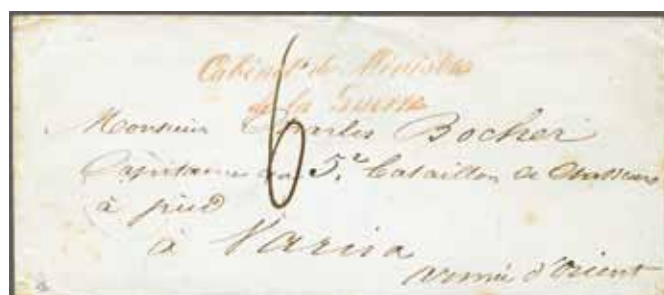 Cabinet du Ministre
de la Guerre
Monsieur Charles Bocher
Capitaine au 5.e Bataillon de Chasseurs
à pied
à Varna
armée d'Orient
6